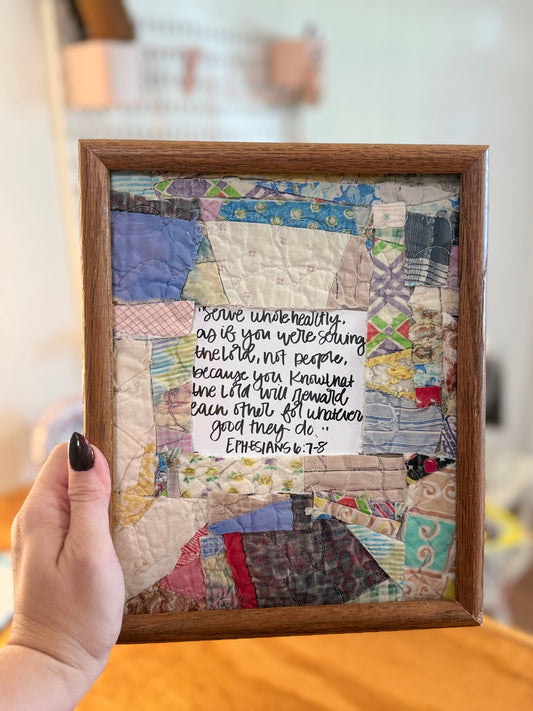 "serve wholeheartly,
as if you were serving
the Lord, not people,
because you know that
the Lord will reward
each other for whatever
good they do."
EPHESIANS 6:7-8